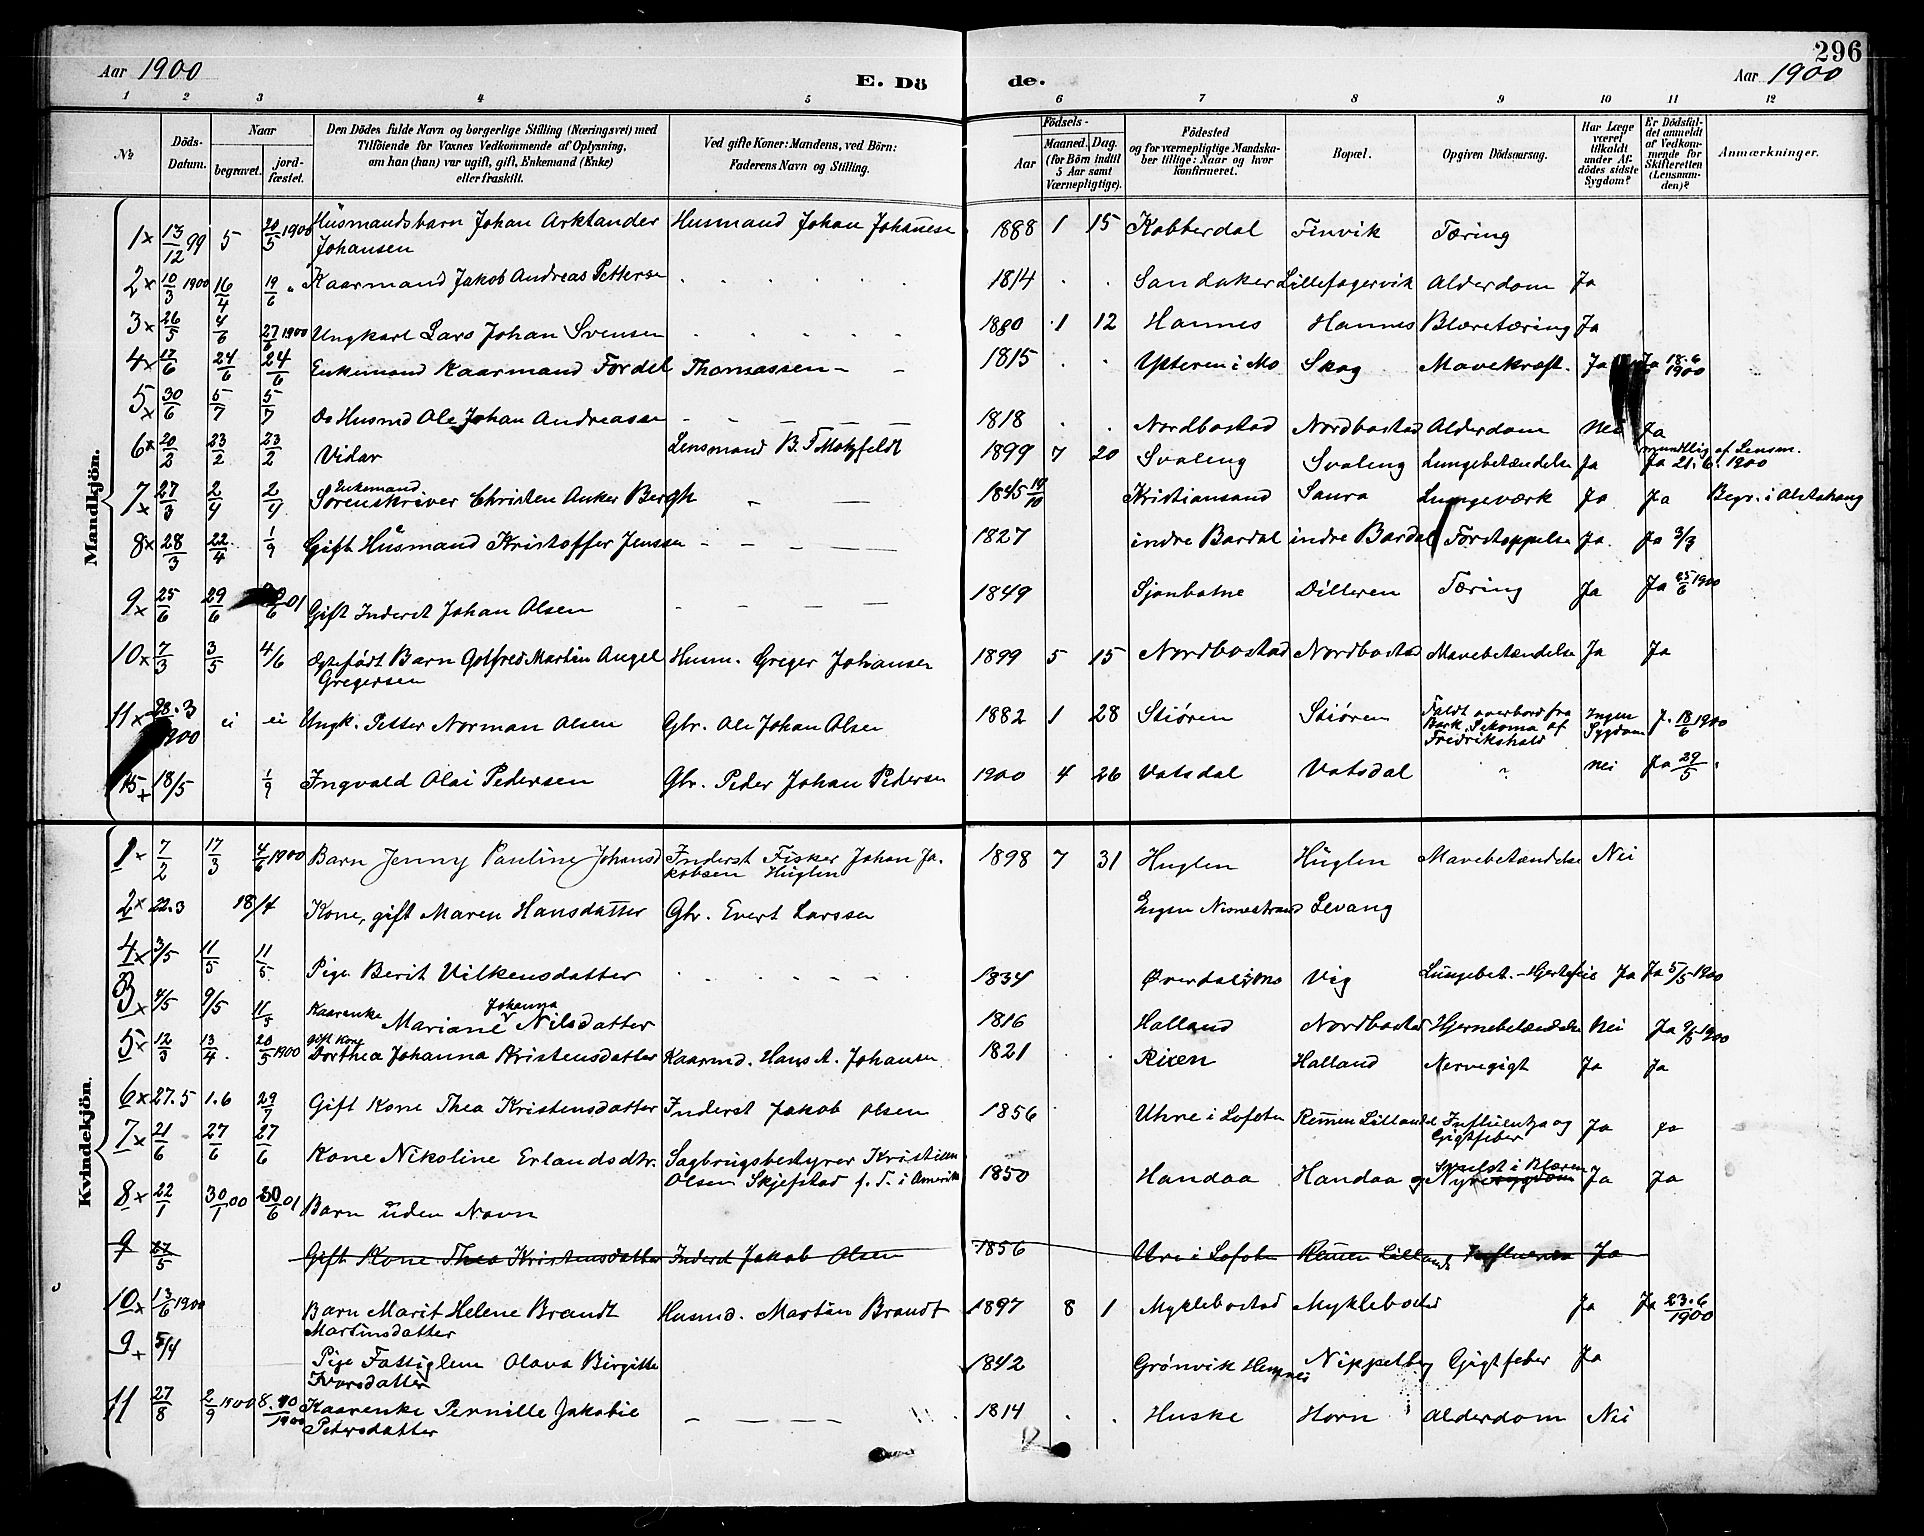 296
Aar 1900
E. Dö
de.
Aar 1900
1 2 3 4 5 6 7 8 9 10 11 12
No.
Döds-Datum.
Naar
begravet.
jord-fæstet.
Den Dödes fulde Navn og borgerlige Stilling (Næringsvei) med
Tilföiende for Voxnes Vedkommende af Oplysning,
om han (hun) var ugift, gift, Enkemand (Enke)
eller fraskilt.
Ved gifte Koner: Mandens, ved Börn:
Faderens Navn og Stilling.
Födsels-
Aar
Maaned. Dag.
(for Börn indtil
5 Aar samt
Værnepligtige).
Födested
og for værnepligtige Mandska-
ber tillige: Naar og hvor
konfirmeret.
Bopæl.
Opgiven Dödsaarsag.
Har Læge
været
tilkaldt
under Af-
dödes sidste
Sygdom?
Er Dödsfal-
det anmeldt
af Vedkom-
mende for
Skifteretten
(Lensman-
den)?
Anmærkninger.
Mandkjön.
1 x 13/12 99 5 20/5 1900 Husmandsbarn Johan Arktander Husmand Johan Johansen 1888 1 15 Kobberdal Finvik Tæring
Johansen
2 x 10/3 1900 16/4 19/6 " Kaarmand Jakob Andreas Petterse 1814 Sandaker Lillefagervik Alderdom Ja
3 x 26/5 4/6 27/6 1900 Ungkarl Lars Johan Svensen 1880 1 12 Hannes Hannes Blæretæring Ja
4 x 17/6 24/6 24/6 Enkemand Kaarmand Fordel Thomassen 1815 Ytteren i Mo Skog Mavekræft. Ja Ja 18.6 1900
5 x 30/6 5/7 5/7 Do Husmd Ole Johan Andreasse 1818 Nordbostad Nordbostad Alderdom Nei Ja
mundtlig af Lensm.
6 x 20/2 23/2 23/2 Vidar Lensmand B. F. Motzfeldt 1899 7 20 Svaleng Svaleng Lungebetændelse Ja Ja 21.6.1900
Enkemand
7 x 27/3 2/4 2/4 Sorenskriver Christen Anker Bergh 1845 19/10 Kristiansand Saura Lungeværk Ja Ja Begr. i Alstahaug
8 x 28/3 22/4 1/9 Gift Husmand Kristoffer Jenssen 1827 indre Bardal indre Bardal Forstoppelse Ja Ja 3/3
9 x 25/6 29/6 01 Gift Inderst Johan Olsen 1849 Sjonbotne Dilleren Tæring Ja Ja 25/6 1900
10 x 7/3 3/5 4/6 Ægtefödt Barn Gotfred Martin Angel Husm. Greger Johansen 1899 5 15 Nordbostad Nordbostad Mavebetændelse Ja Ja
Gregersen
11 x 28.3 1900 ei ei Ungk. Petter Norman Olsen Gbr. Ole Johan Olsen 1882 1 28 Stiören Stiören Faldt overbord fra Ingen J. 18/6 1900
Bark. Sekoma af Sygdom
Fredrikshald
15 + 18/5 1/9 Ingvald Olai Pedersen Gbr. Peder Johan Pedersen 1900 4 26 Vatsdal Vatsdal " Nei Ja 29/5
Kvindekjön.
1 x 7/2 17/3 4/6 1900 Barn Jenny Pauline Johansd Inderst Fisker Johan Ja- 1898 7 31 Huglen Huglen Mavebetændelse Nei
kobsen Huglen
2 x 22.3 18/4 Kone, gift Maren Hansdatter Gbr. Evert Larssen Engen Nesnestrand Levang
4 x 3/5 11/5 11/5 Pige Berit Vilkensdatter 1834 Øverdal i Mo Vig Lungebet.-Hjertefeil Ja Ja 5/5 1900
Johanna
3 x 4/5 9/5 11/5 Kaarenke Mariane Nilsdatter 1816 Halland Nordbostad Hjernebetændelse Nei Ja 9/5 1900
Gift Kone
5 x 12/3 13/4 20/5 1900 Dorthea Johanna Kristensdatter Kaarmd. Hans A. Johansen 1821 Rixen Halland Nervegigt Ja Ja
6 x 27.5 1.6 29/7 Gift Kone Thea Kristensdatter Inderst Jakob Olsen 1856 Uhre i Lofoten Remen Lilland Influentza og Ja Ja
Gigtfeber
7 x 21/6 27/6 27/6 Kone Nikoline Erlandsdtr. Sagbrugsbestyrer Kristian 1850 Handaa Handaa og Nyresygdom Ja Ja
Olsen Skjefstad f. T. i Amerika
8 x 22/1 30/1 00 30/6 01 Barn uden Navn
9 27/5 Gift Kone Thea Kristensdatter Inderst Jakob Olsen 1856 Ure i Lofoten Remen Lilland Influensa Ja
10 x 13/6 1900 Barn Marit Helene Brandt Husmd. Martin Brandt 1897 8 1 Myklebostad Myklebostad Ja Ja 23.6 1900
Martinsdatter
9 + 5/4 Pige Fattiglem Olava Birgitte 1842 Grønvik Hemnes Nippelberg Gigtfeber Ja
Ivarsdatter
11 27/8 2/9 1900 8.10 1900 Kaarenke Pernille Jakobie 1814 Huske Horn Alderdom Nei
Petersdatter